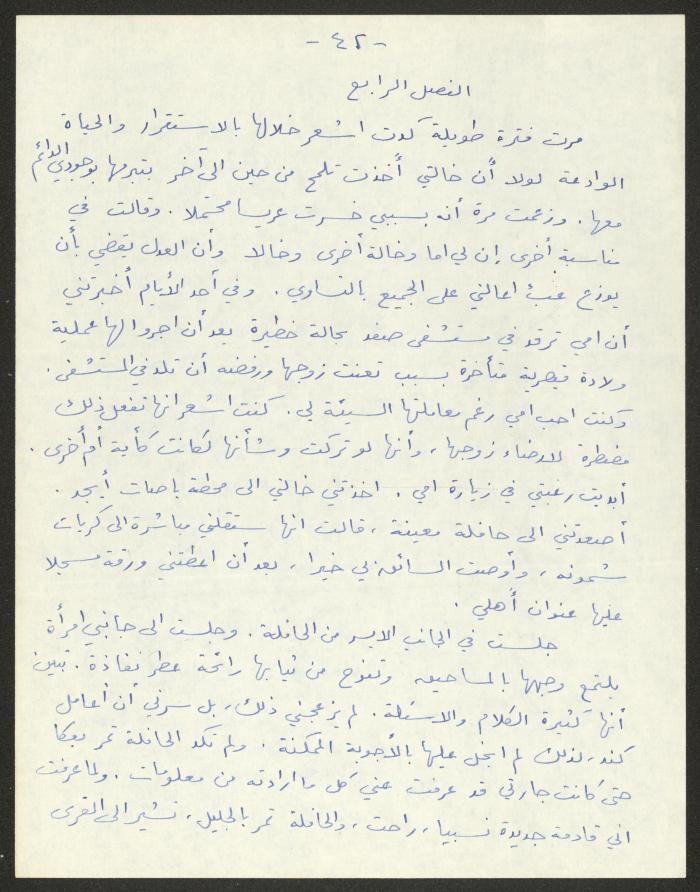 - ٤٢ -
الفصل الرابع
مرت فترة طويلة كدت اشعر خلالها بالاستقرار والحياة
الوادعة لولا أن خالتي أخذت تلمح من حين الى آخر بتبرمها بوجودي الدائم
معها. وزعمت مرة أنه بسببي خسرت عريسا محتملا. وقالت في
مناسبة أخرى إن لي اما وخالة أخرى وخالا وأن العدل يقضي بأن
يوزع عبء اعالتي على الجميع بالتساوي. وفي أحد الأيام أخبرتني
أن امي ترقد في مستشفى صفد بحالة خطرة بعد أن اجروا لها عملية
ولادة قيصرية متأخرة بسبب تعنت زوجها ورفضه أن تلد في المستشفى.
وكنت احب امي رغم معاملتها السيئة لي. كنت اشعر انها تفعل ذلك
مضطرة لارضاء زوجها، وأنها لو تركت وشأنها لكانت كأية أم أخرى.
أبديت رغبتي في زيارة امي. اخذتني خالتي الى محطة باصات أيجد.
أصعدتني الى حافلة معينة، قالت انها ستقلني مباشرة الى كريات
شمونه، وأوصت السائق بي خيرا، بعد أن اعطتني ورقة مسجلا
عليها عنوان أهلي.
جلست في الجانب الايسر من الحافلة. وجلست الى جانبي امرأة
يلتمع وجهها بالمساحيق وتفوح من ثيابها رائحة عطر نفاذة. تبين
أنها كثيرة الكلام والاسئلة. لم يزعجني ذلك، بل سرني أن أعامل
كند، لذلك لم ابخل عليها بالأجوبة الممكنة. ولم تكد الحافلة تمر بعكا
حتى كانت جارتي قد عرفت عني كل ما ارادته من معلومات. ولما عرفت
اني قادمة جديدة نسبيا، راحت، والحافلة تمر بالجليل، تشير الى القرى